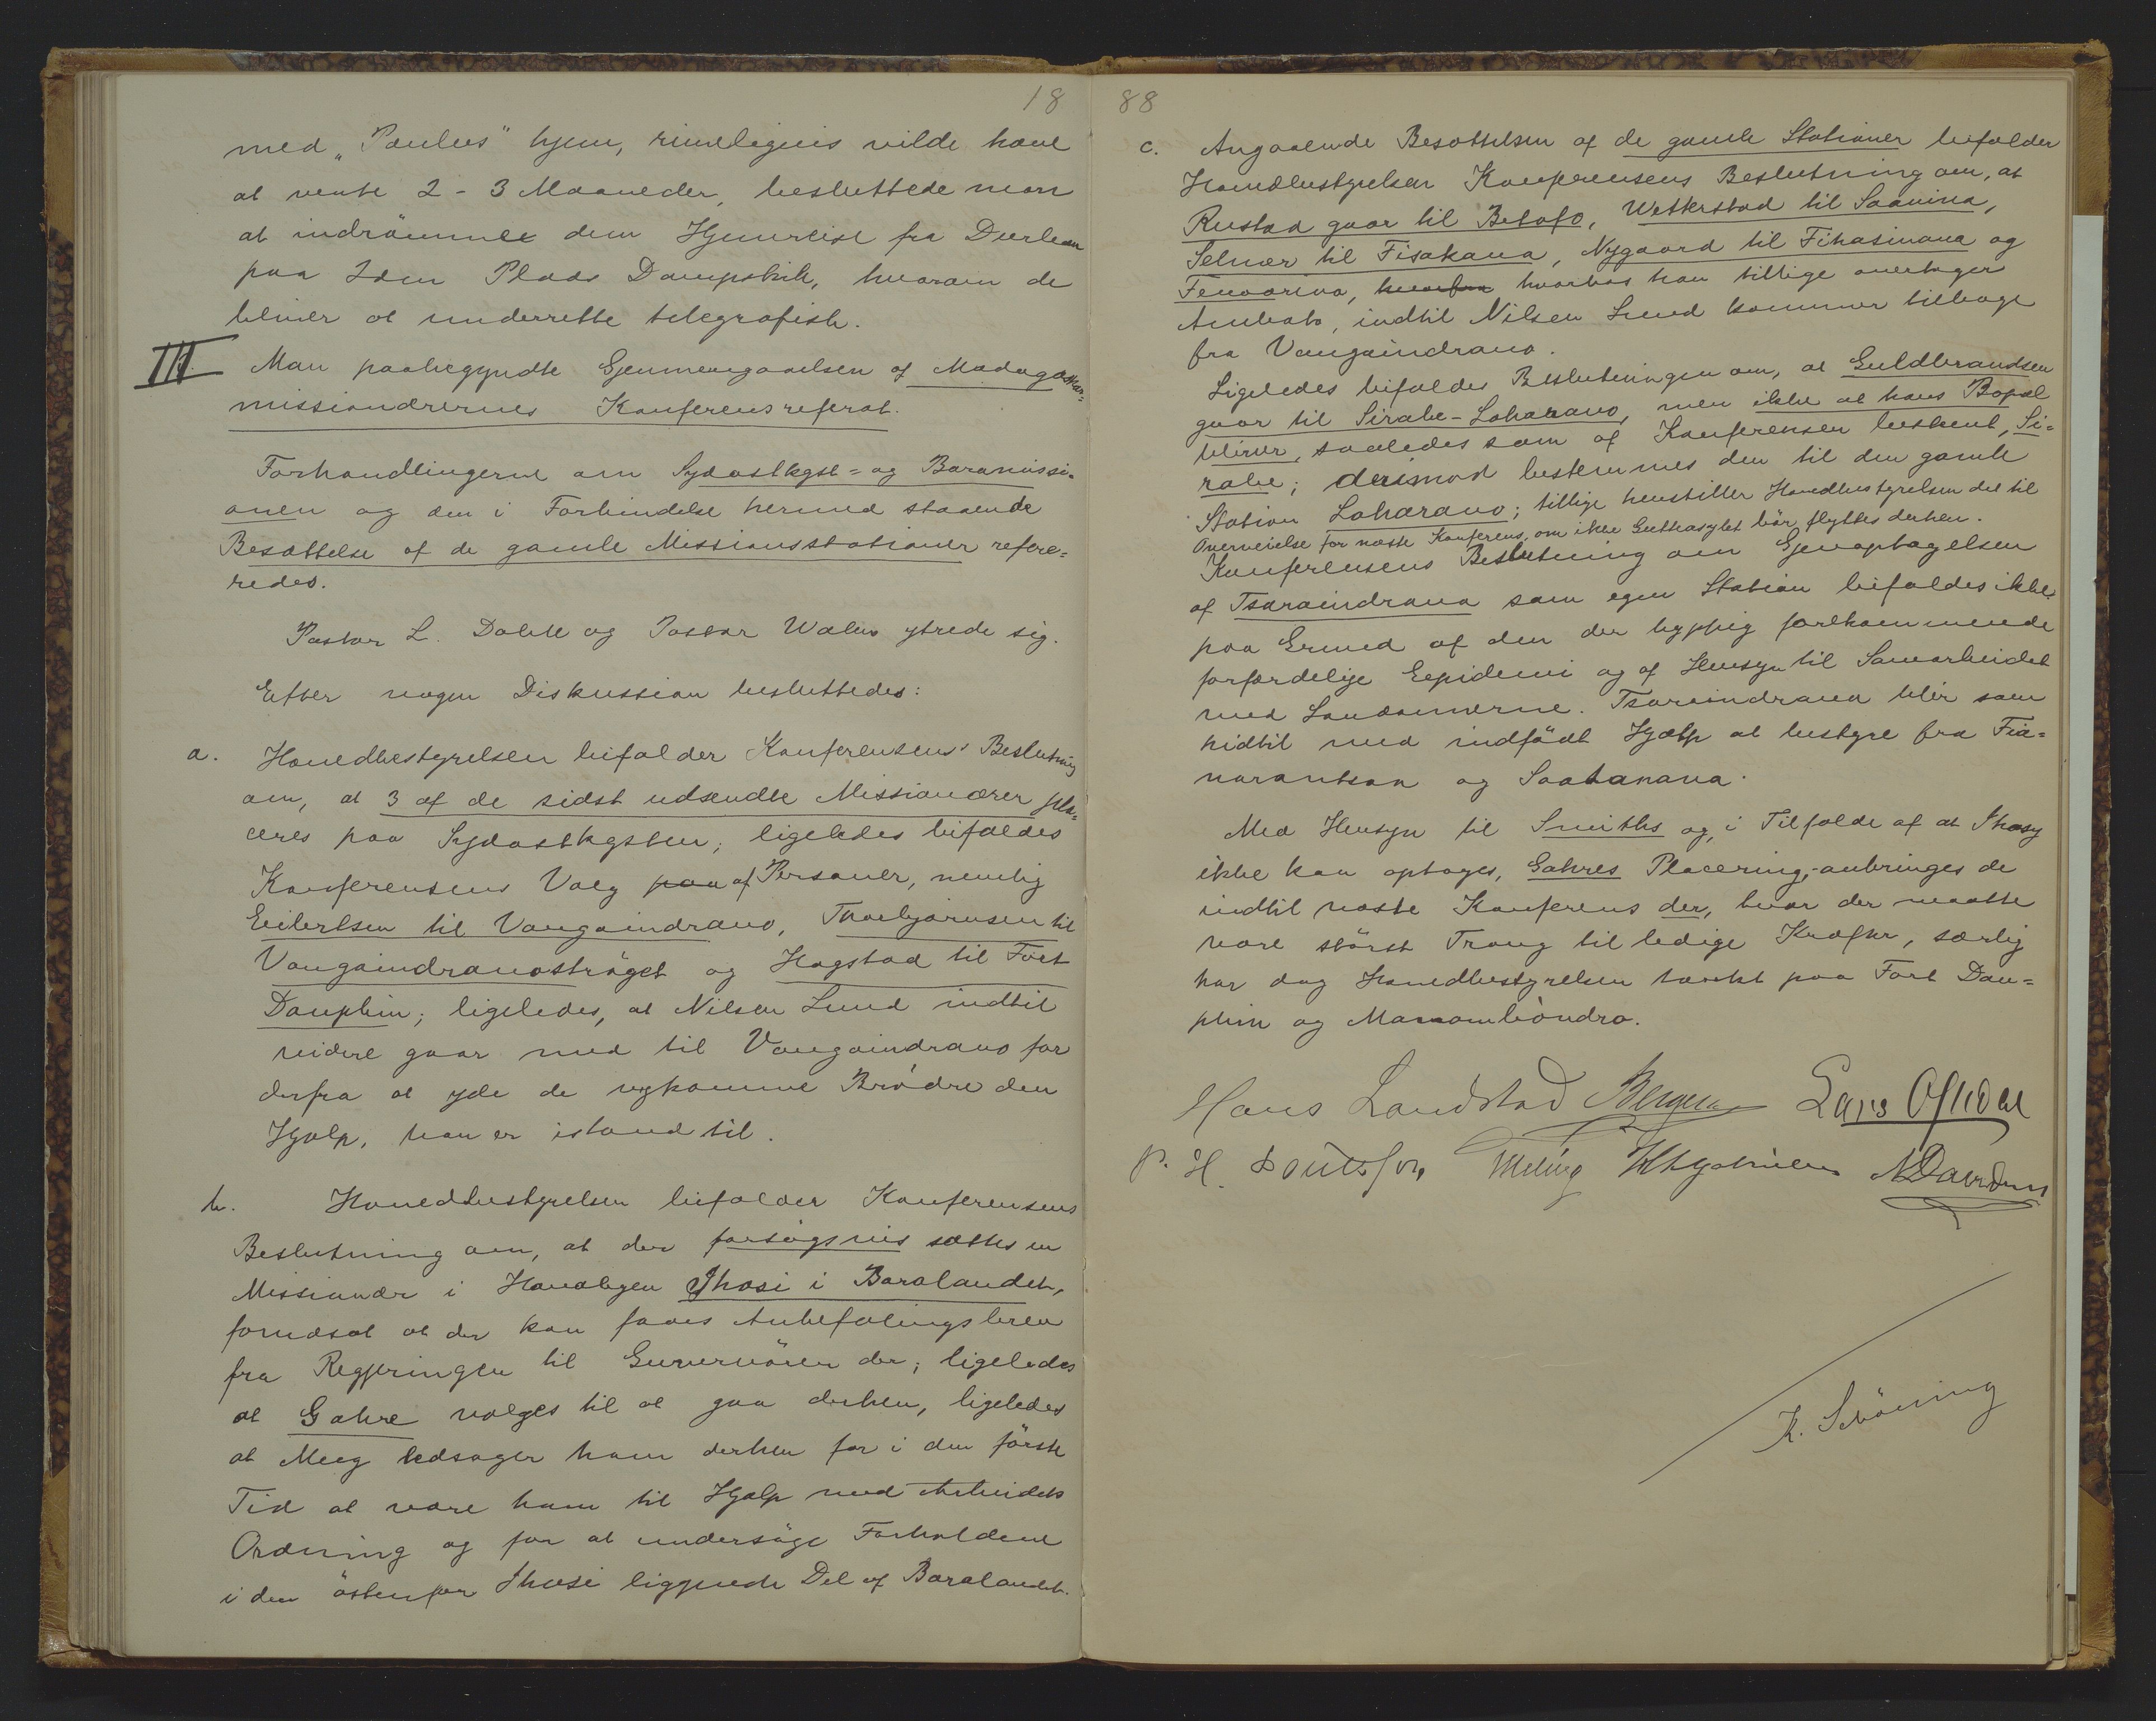 18
med "Paulus" hjem, rimeligvis vilde have
at vente 2-3 Maaneder, besluttede man
at indrömme dem Hjemreise fra Durban
paa 2den Plads Dampskib, hvorom de
bliver at underrette telegrafisk.
III. Man paabegyndte Gjennemgaaelsen af Madagaskar-
missionærernes Konferensreferat.
Forhandlingerne om Sydostkyst- og Baramissi-
onen og den i Forbindelse hermed staaende
Besættelse af de gamle Missionsstationer refere-
redes.
Pastor L. Dahle og Pastor Walen ytrede sig.
Efter nogen Diskussion besluttedes:
a. Hovedbestyrelsen bifalder Konferensens Beslutning
om, at 3 af de sidst udsendte Missionærer pla-
ceres paa Sydostkysten; ligeledes bifaldes
Konferensens Valg paa af Personer, nemlig
Eilertsen til Vangaindrano, Thorbjørnsen til
Vangaindranoströget og Hogstad til Fort
Dauphin; ligeledes, at Nilsen Lund indtil
videre gaar med til Vangaindrano for
derfra at yde de nykomne Brödre den
Hjælp, han er istand til.
b. Hovedbestyrelsen bifalder Konferensens
Beslutning om, at der forsögsvis sættes en
Missionær i Hovabyen Ihosi i Baralandet,
forudsat at der kan faaes Anbefalingsbrev
fra Regjeringen til Guvernören der; ligeledes
at Gahre vælges til at gaa derhen, ligeledes
at Meeg ledsager ham derhen for i den förste
Tid at være ham til Hjælp med Arbeidets
Ordning og for at undersöge Forholdene
i den östenfor Ihosi liggende Del af Baralandet.
88
c. Angaaende Besættelsen af de gamle Stationer bifalder
Hovedbestyrelsen Konferensens Beslutning om, at
Rustad gaar til Betafo, Wetterstad til Soavina,
Selmer til Fisakana, Nygaard til Fihasinana og
Fenoarivo, hvorfra hvorhos han tillige overtager
Ambato, indtil Nilsen Lund kommer tilbage
fra Vangaindrano.
Ligeledes bifaldes Beslutningen om, at Guldbrandsen
gaar til Sirabe-Loharano, men ikke at hans Bopæl
bliver, saaledes som af Konferensen bestemt, Si-
rabe; derimod bestemmes den til den gamle
Station Loharano; tillige henstiller Hovedbestyrelsen det til
Overveielse for næste Konferens, om ikke Gutteasylet bör flyttes derhen.
Konferensens Beslutning om Gjenoptagelsen
af Tsaraindrana som egen Station bifaldes ikke
paa Grund af den der hyppig forekommende
forfærdelige Epidemi og af Hensyn til Samarbeidet
med Londonerne. Tsaraindrana blir som
hidtil med indfödt Hjælp at bestyre fra Fia-
narantsoa og Soatanana.
Med Hensyn til Smiths og, i Tilfælde af at Ihosy
ikke kan optages, Gahres Placering, anbringes de
indtil næste Konferens der, hvor der maatte
være störst Trang til ledige Kræfter, særlig
har dog Hovedbestyrelsen tænkt paa Fort Dau-
phin og Manambóndro.
Hans Landstad Bergesen Lars Oftedal
P. H. Meling
K. Schöning